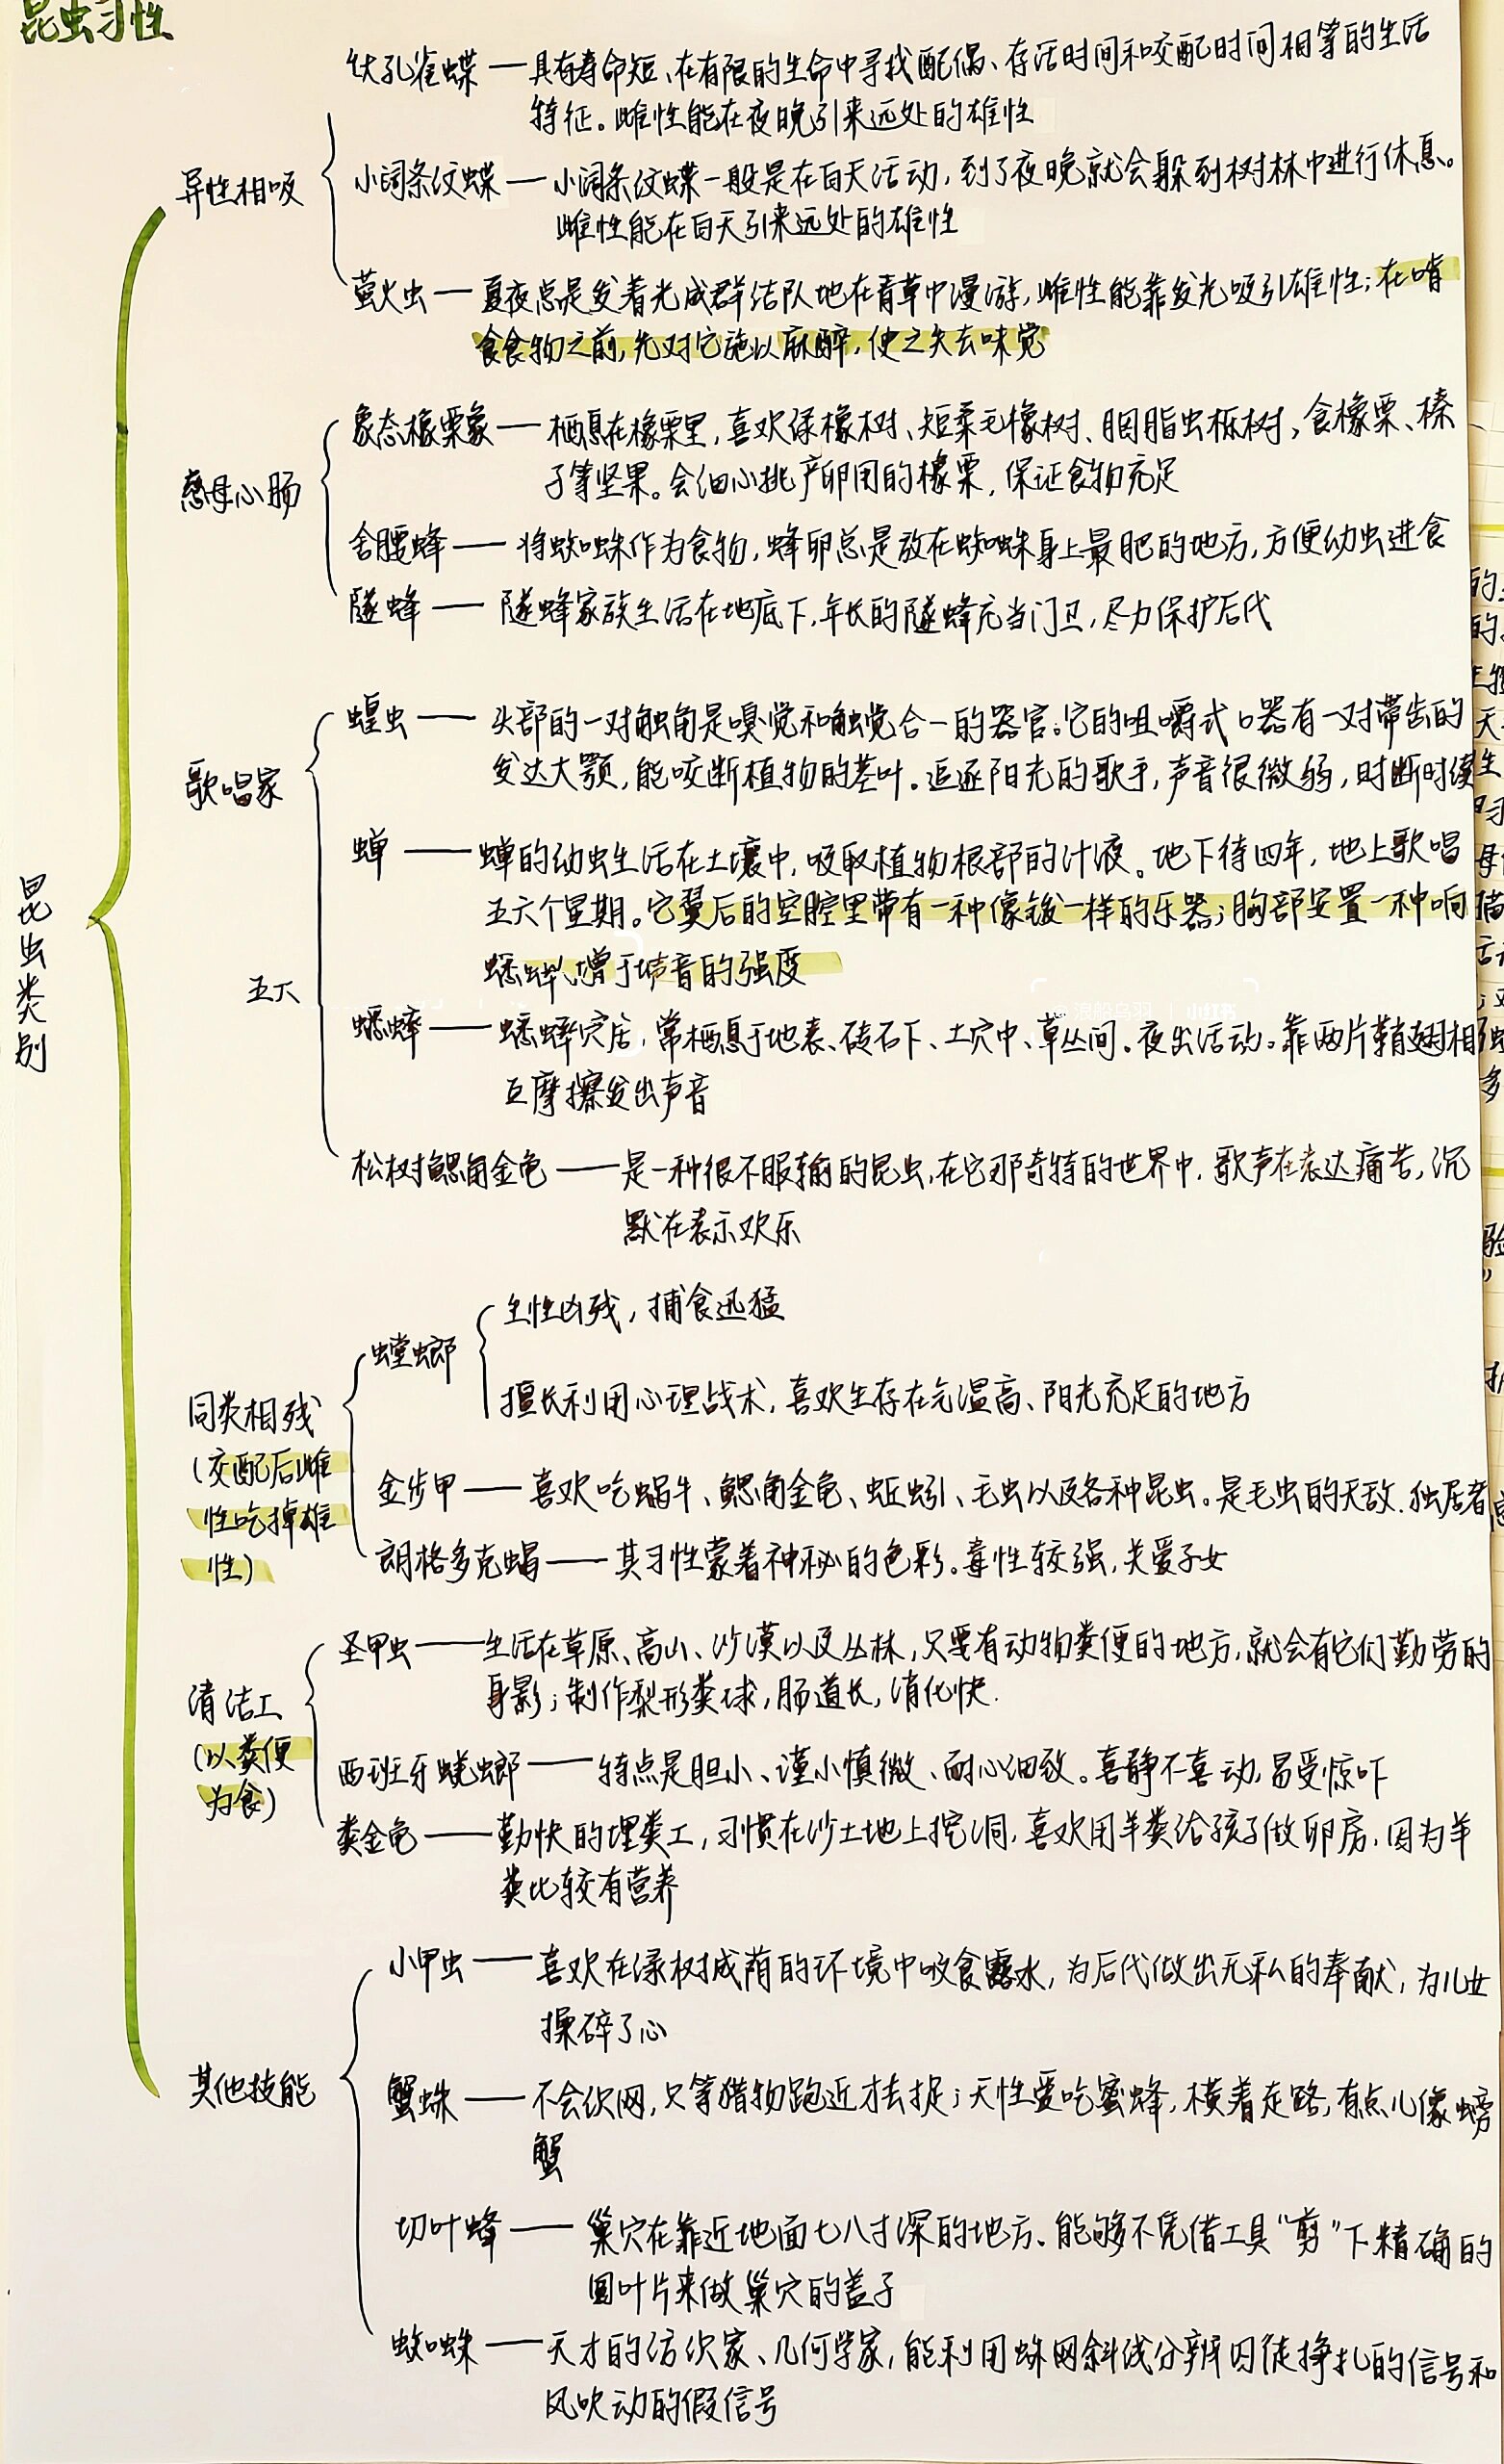 昆虫习性
大孔雀蝶 — 具有寿命短、在有限的生命中寻找配偶、存活时间和交配时间相等的生活
特征。雌性能在夜晚引来远处的雄性
异性相吸
小阔条纹蝶 — 小阔条纹蝶一般是在白天活动,到了夜晚就会躲到树林中进行休息。
雌性能在白天引来远处的雄性
萤火虫 — 夏夜总是发着光成群结队地在青草中漫游,雌性能靠发光吸引雄性;在啃
食食物之前,先对它施以麻醉,使之失去味觉
象态橡栗象 — 栖息在橡栗里,喜欢绿橡树、短柔毛橡树、胭脂虫栎树,食橡栗、榛
子等坚果。会细心挑产卵用的橡栗,保证食物充足
慈母心肠
舍腰蜂 — 将蜘蛛作为食物,蜂卵总是放在蜘蛛身上最肥的地方,方便幼虫进食
隧蜂 — 隧蜂家族生活在地底下,年长的隧蜂充当门卫,尽力保护后代
蝗虫 — 头部的一对触角是嗅觉和触觉合一的器官。它的咀嚼式口器有一对带齿的
发达大颚,能咬断植物的茎叶。追逐阳光的歌手,声音很微弱,时断时续
歌唱家
蝉 — 蝉的幼虫生活在土壤中,吸取植物根部的汁液。地下待四年,地上歌唱
五六个星期。它翼后的空腔里带有一种像钹一样的乐器;胸部安置一种响
蟋蟀,增于声音的强度
五六
昆虫类别
蟋蟀 — 蟋蟀穴居,常栖息于地表、砖石下、土穴中、草丛间。夜出活动。靠两片鞘翅相
互摩擦发出声音
松树鳃角金龟 — 是一种很不服输的昆虫,在它那奇特的世界中,歌声在表达痛苦,沉
默在表示欢乐
生性凶残,捕食迅猛
螳螂
擅长利用心理战术,喜欢生存在气温高、阳光充足的地方
同类相残
(交配后雌
性吃掉雄
性)
金步甲 — 喜欢吃蜗牛、鳃角金龟、蚯蚓、毛虫以及各种昆虫。是毛虫的天敌.独居者
朗格多克蝎 — 其习性蒙着神秘的色彩。毒性较强,关爱子女
圣甲虫 — 生活在草原、高山、沙漠以及丛林,只要有动物粪便的地方,就会有它们勤劳的
身影;制作梨形粪球,肠道长,消化快.
清洁工
(以粪便
为食)
西班牙蜣螂 — 特点是胆小、谨小慎微、耐心细致。喜静不喜动,易受惊吓
粪金龟 — 勤快的埋粪工,习惯在沙土地上挖洞,喜欢用羊粪给孩子做卵房,因为羊
粪比较有营养
小甲虫 — 喜欢在绿树成荫的环境中吸食露水,为后代做出无私的奉献,为儿女
操碎了心
其他技能
蟹蛛 — 不会织网,只等猎物跑近才去捉;天性爱吃蜜蜂,横着走路,有点儿像螃
蟹
切叶蜂 — 巢穴在靠近地面七八寸深的地方.能够不凭借工具“剪”下精确的
圆叶片来做巢穴的盖子
蜘蛛 — 天才的纺织家、几何学家,能利用蛛网斜线分辨囚徒挣扎的信号和
风吹动的假信号